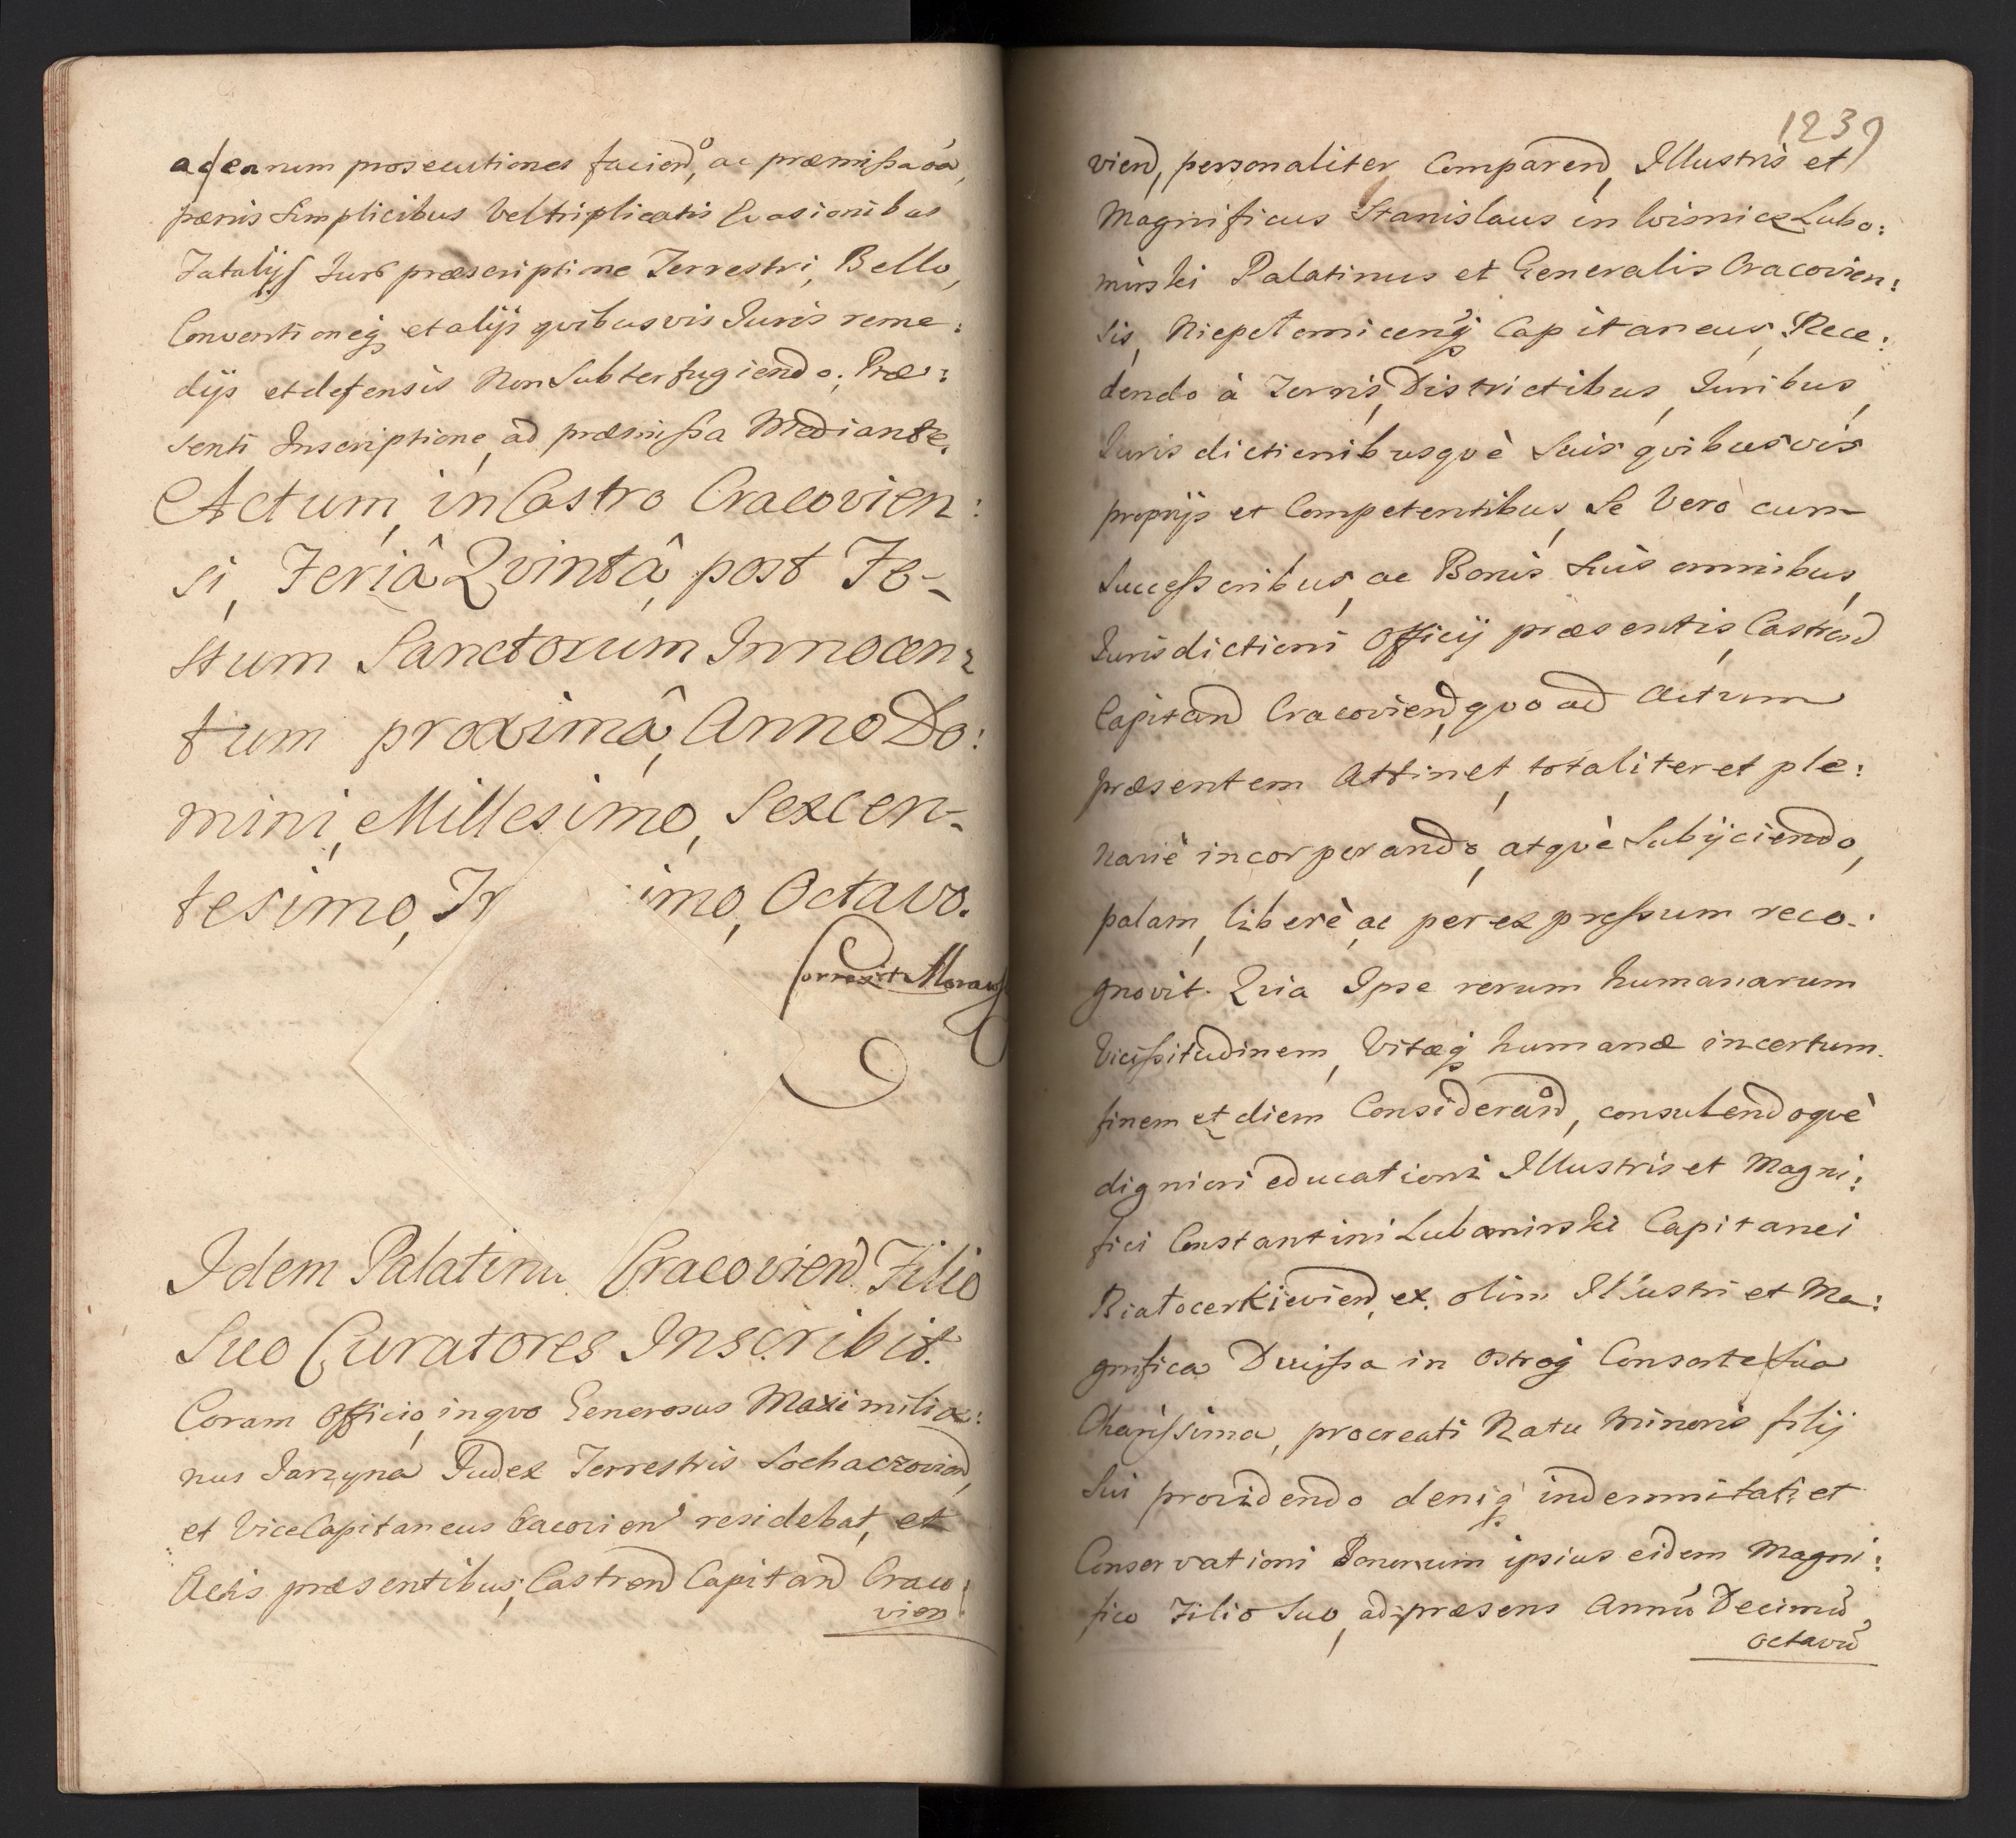 ad eanum prosecutiones faciend, ac præmissa oa,
pænis simplicibus vel triplicatis Evasionibus
Fatalijs Jurs præscriptione Terrestri, Bello,
Conventioneq et alijs qvibusvis Juris reme:
dijs et defensis Non Subterfugiendo. Præ:
senti Inscriptione, ad præmissa Mediante.
Actum, in Castro Cracovien:
si, Feriâ Qvintâ, post Fe-
stum Sanctorum Innocen:
tum proximâ, Anno Do:
mini, Millesimo, Sexcen-
tesimo, Tr imo, Octavo.
Correxit
Idem Palatinu Cracoviend Filio
Suo Curatores Inscribit.
Coram Officio, in qvo Generosus Maximilia:
nus Jarzyna Judex Terrestris Sochaczoviend,
et ViceCapitaneus Cracoviend residebat, et
Actis præsentibus, Castrend Capitand Craco:
vien
1239
viend, personaliter Comparend, Illustris et
Magnificus Stanislaus in Wisnicz Lubo:
mirski Palatinus et Generalis Cracovien:
sis, Niepołomicenq Capitaneus, Rece:
dendo à Terris, Districtibus, Juribus,
Jurisdictionibusqvè Suis qvibusvis
proprijs et Competentibus, Se Verò cum
Successoribus, ac Bonis Suis omnibus,
Jurisdictioni Officij præsentis, Castrend
Capitand Cracoviend, qvo ad Actum
præsentem Attinet, totaliter et ple:
nariè incorporando, atqvè Subijciendo,
palam, liberè, ac per expressum reco:
gnovit. Qvia Ipse rerum humanarum
Vicissitudinem, Vitæq humanæ incertum
finem et diem Considerand, consulendoqvè
digniori educationi Illustris et Magni:
fici Constantini Lubomirski Capitanei
Białocerkieviend, ex olim Illustri et Ma:
gnifica Ducissa in Ostrog Consorte Sua
Charissima, procreati Natu Minoris filij
Sui providendo deniq indemnitati et
Conservationi Bonorum ipsius eidem Magni:
fico Filio Suo, ad præsens Annũ Decimũ,
octavũ